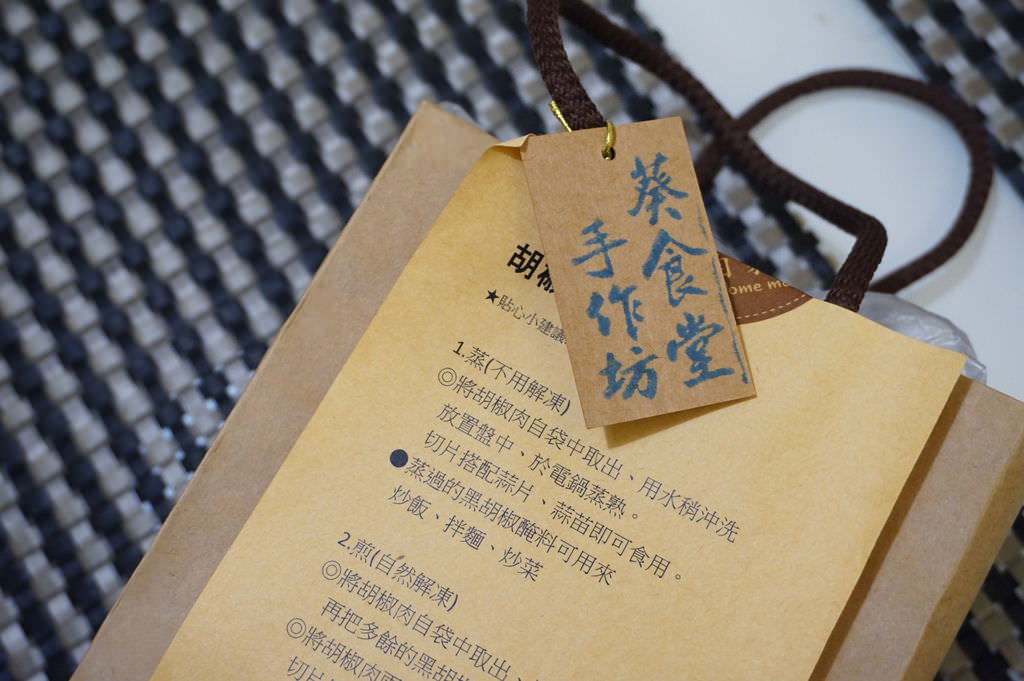 葵食堂
手作坊
ome m
胡椒
★貼心小建議
1.蒸(不用解凍)
◎將胡椒肉自袋中取出、用水稍沖洗
放置盤中、於電鍋蒸熟。
切片搭配蒜片、蒜苗即可食用。
●蒸過的黑胡椒醃料可用來
炒飯、拌麵、炒菜
2.煎(自然解凍)
◎將胡椒肉自袋中取出、
再把多餘的黑胡椒
◎將胡椒肉
切片